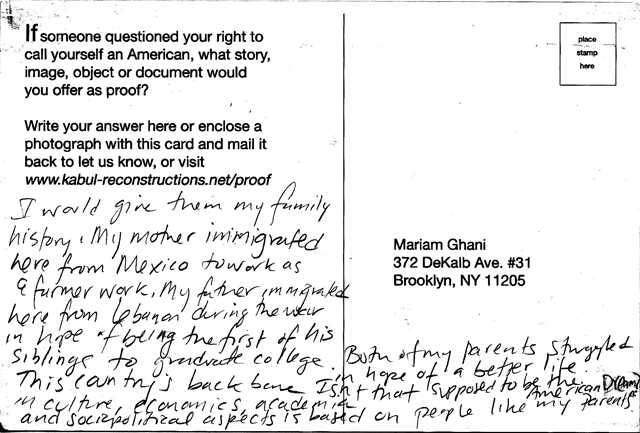 If someone questioned your right to
call yourself an American, what story,
image, object or document would
you offer as proof?
Write your answer here or enclose a
photograph with this card and mail it
back to let us know, or visit
www.kabul-reconstructions.net/proof
place
stamp
here
Mariam Ghani
372 DeKalb Ave. #31
Brooklyn, NY 11205
I would give them my family
history. My mother immigrated
here from Mexico to work as
a farmer work. My father immigrated
here from Lebanon during the war
in hope of being the first of his
siblings to graduate college. Both of my parents struggled
in hope of a better life.
Isn't that supposed to be the American Dream?
This country's back bone
in culture, economics, academia
and sociopolitical aspects is based on people like my parents